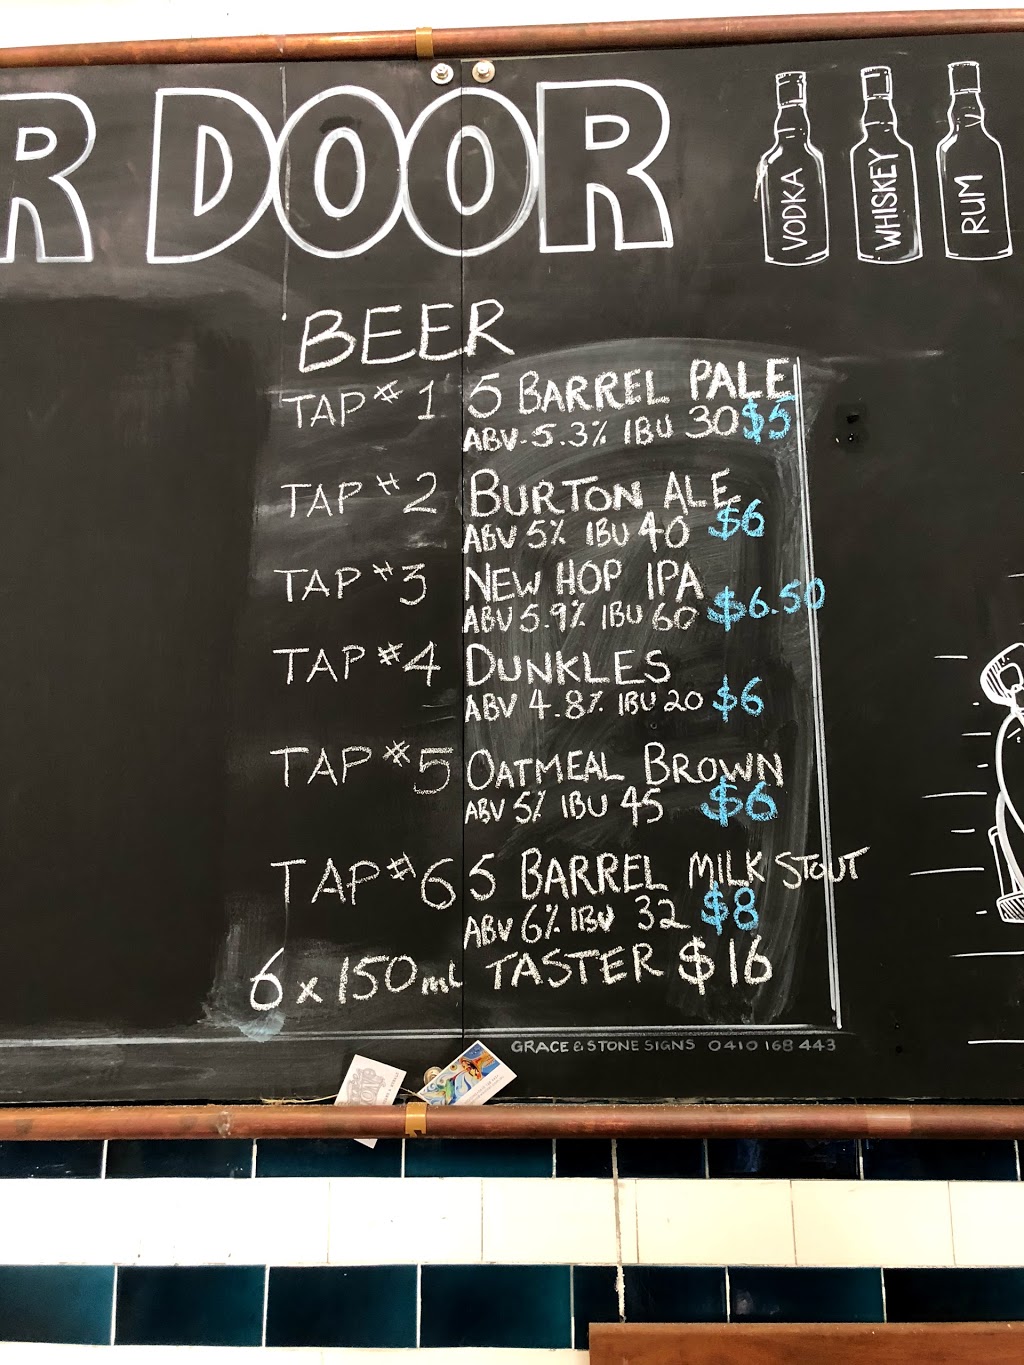 R DOOR
VODKA
WHISKEY
RUM
BEER
TAP #1 5 BARREL PALE
ABV-5.3% IBU 30 $5
TAP #2 BURTON ALE
ABV 5% IBU 40 $6
TAP #3 NEW HOP IPA
ABV 5.9% IBU 60 $6.50
TAP #4 DUNKLES
ABV 4.8% IBU 20 $6
TAP #5 OATMEAL BROWN
ABV 5% IBU 45 $6
TAP #6 5 BARREL MILK STOUT
ABV 6% IBU 32 $8
6 x 150ml TASTER $16
GRACE & STONE SIGNS 0410 168 443